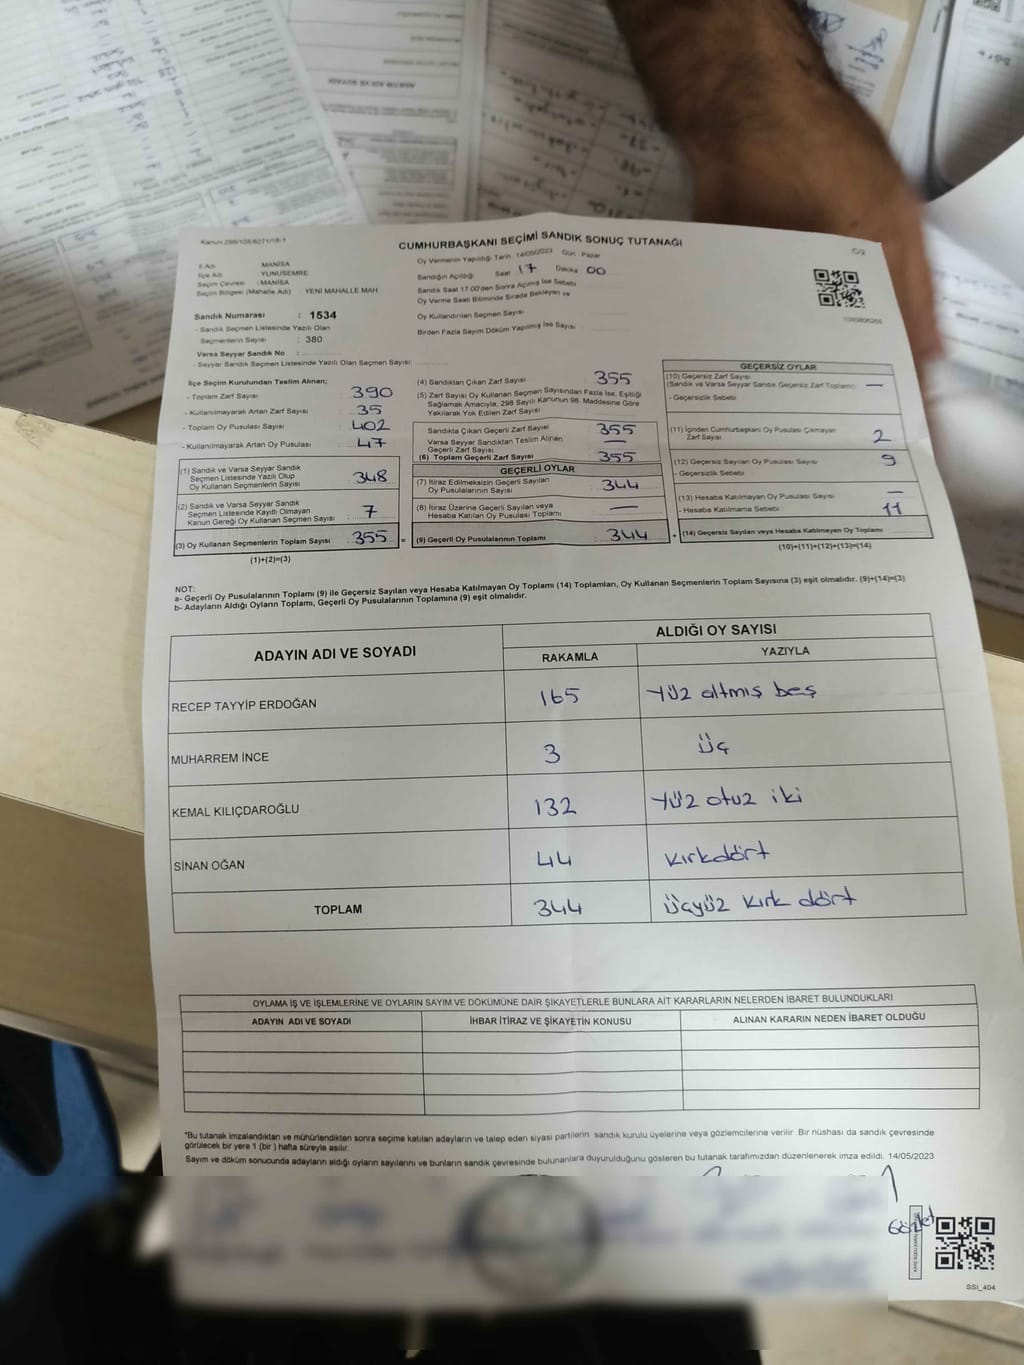 Kanun 298/105:6271/18-1
CUMHURBAŞKANI SEÇİMİ SANDIK SONUÇ TUTANAĞI
C/2
İl Adı : MANİSA
İlçe Adı : YUNUSEMRE
Seçim Çevresi : MANİSA
Seçim Bölgesi (Mahalle Adı) : YENİ MAHALLE MAH.
Sandık Numarası : 1534
- Sandık Seçmen Listesinde Yazılı Olan
Seçmenlerin Sayısı : 380
Varsa Seyyar Sandık No :
- Seyyar Sandık Seçmen Listesinde Yazılı Olan Seçmen Sayısı
Oy Vermenin Yapıldığı Tarih 14/05/2023 Gün: Pazar
Sandığın Açıldığı Saat 17 Dakika 00
Sandık Saat 17.00'den Sonra Açılmış İse Sebebi
Oy Verme Saati Bitiminde Sırada Bekleyen ve
Oy Kullandırılan Seçmen Sayısı
Birden Fazla Sayım Döküm Yapılmış İse Sayısı
İlçe Seçim Kurulundan Teslim Alınan;
- Toplam Zarf Sayısı : 390
- Kullanılmayarak Artan Zarf Sayısı : 35
- Toplam Oy Pusulası Sayısı : 402
- Kullanılmayarak Artan Oy Pusulası : 47
(1) Sandık ve Varsa Seyyar Sandık
Seçmen Listesinde Yazılı Olup
Oy Kullanan Seçmenlerin Sayısı : 348
(2) Sandık ve Varsa Seyyar Sandık
Seçmen Listesinde Kayıtlı Olmayan
Kanun Gereği Oy Kullanan Seçmen Sayısı : 7
(3) Oy Kullanan Seçmenlerin Toplam Sayısı : 355 =
(1)+(2)=(3)
(4) Sandıktan Çıkan Zarf Sayısı : 355
(5) Zarf Sayısı Oy Kullanan Seçmen Sayısından Fazla İse, Eşitliği
Sağlamak Amacıyla, 298 Sayılı Kanunun 98. Maddesine Göre
Yakılarak Yok Edilen Zarf Sayısı
Sandıkta Çıkan Geçerli Zarf Sayısı : 355
Varsa Seyyar Sandıktan Teslim Alınan
Geçerli Zarf Sayısı : —
(6) Toplam Geçerli Zarf Sayısı : 355
GEÇERLİ OYLAR
(7) İtiraz Edilmeksizin Geçerli Sayılan
Oy Pusulalarının Sayısı : 344
(8) İtiraz Üzerine Geçerli Sayılan veya
Hesaba Katılan Oy Pusulası Toplamı : —
(9) Geçerli Oy Pusulalarının Toplamı : 344 +
GEÇERSİZ OYLAR
(10) Geçersiz Zarf Sayısı
(Sandık ve Varsa Seyyar Sandık Geçersiz Zarf Toplamı) : —
- Geçersizlik Sebebi
(11) İçinden Cumhurbaşkanı Oy Pusulası Çıkmayan
Zarf Sayısı 2
(12) Geçersiz Sayılan Oy Pusulası Sayısı 9
- Geçersizlik Sebebi
(13) Hesaba Katılmayan Oy Pusulası Sayısı —
- Hesaba Katılmama Sebebi 11
(14) Geçersiz Sayılan veya Hesaba Katılmayan Oy Toplamı
(10)+(11)+(12)+(13)=(14)
NOT:
a- Geçerli Oy Pusulalarının Toplamı (9) ile Geçersiz Sayılan veya Hesaba Katılmayan Oy Toplamı (14) Toplamları, Oy Kullanan Seçmenlerin Toplam Sayısına (3) eşit olmalıdır. (9)+(14)=(3)
b- Adayların Aldığı Oyların Toplamı, Geçerli Oy Pusulalarının Toplamına (9) eşit olmalıdır.
ADAYIN ADI VE SOYADI ALDIĞI OY SAYISI
RAKAMLA YAZIYLA
RECEP TAYYİP ERDOĞAN 165 yüz altmış beş
MUHARREM İNCE 3 üç
KEMAL KILIÇDAROĞLU 132 yüz otuz iki
SİNAN OĞAN 44 kırkdört
TOPLAM 344 üçyüz kırk dört
OYLAMA İŞ VE İŞLEMLERİNE VE OYLARIN SAYIM VE DÖKÜMÜNE DAİR ŞİKAYETLERLE BUNLARA AİT KARARLARIN NELERDEN İBARET BULUNDUKLARI
ADAYIN ADI VE SOYADI İHBAR İTİRAZ VE ŞİKAYETİN KONUSU ALINAN KARARIN NEDEN İBARET OLDUĞU
*Bu tutanak imzalandıktan ve mühürlendikten sonra seçime katılan adayların ve talep eden siyasi partilerin sandık kurulu üyelerine veya gözlemcilerine verilir. Bir nüshası da sandık çevresinde
görülecek bir yere 1 (bir) hafta süreyle asılır.
Sayım ve döküm sonucunda adayların aldığı oyların sayılarını ve bunların sandık çevresinde bulunanlara duyurulduğunu gösteren bu tutanak tarafımızdan düzenlenerek imza edildi. 14/05/2023
SSI_404